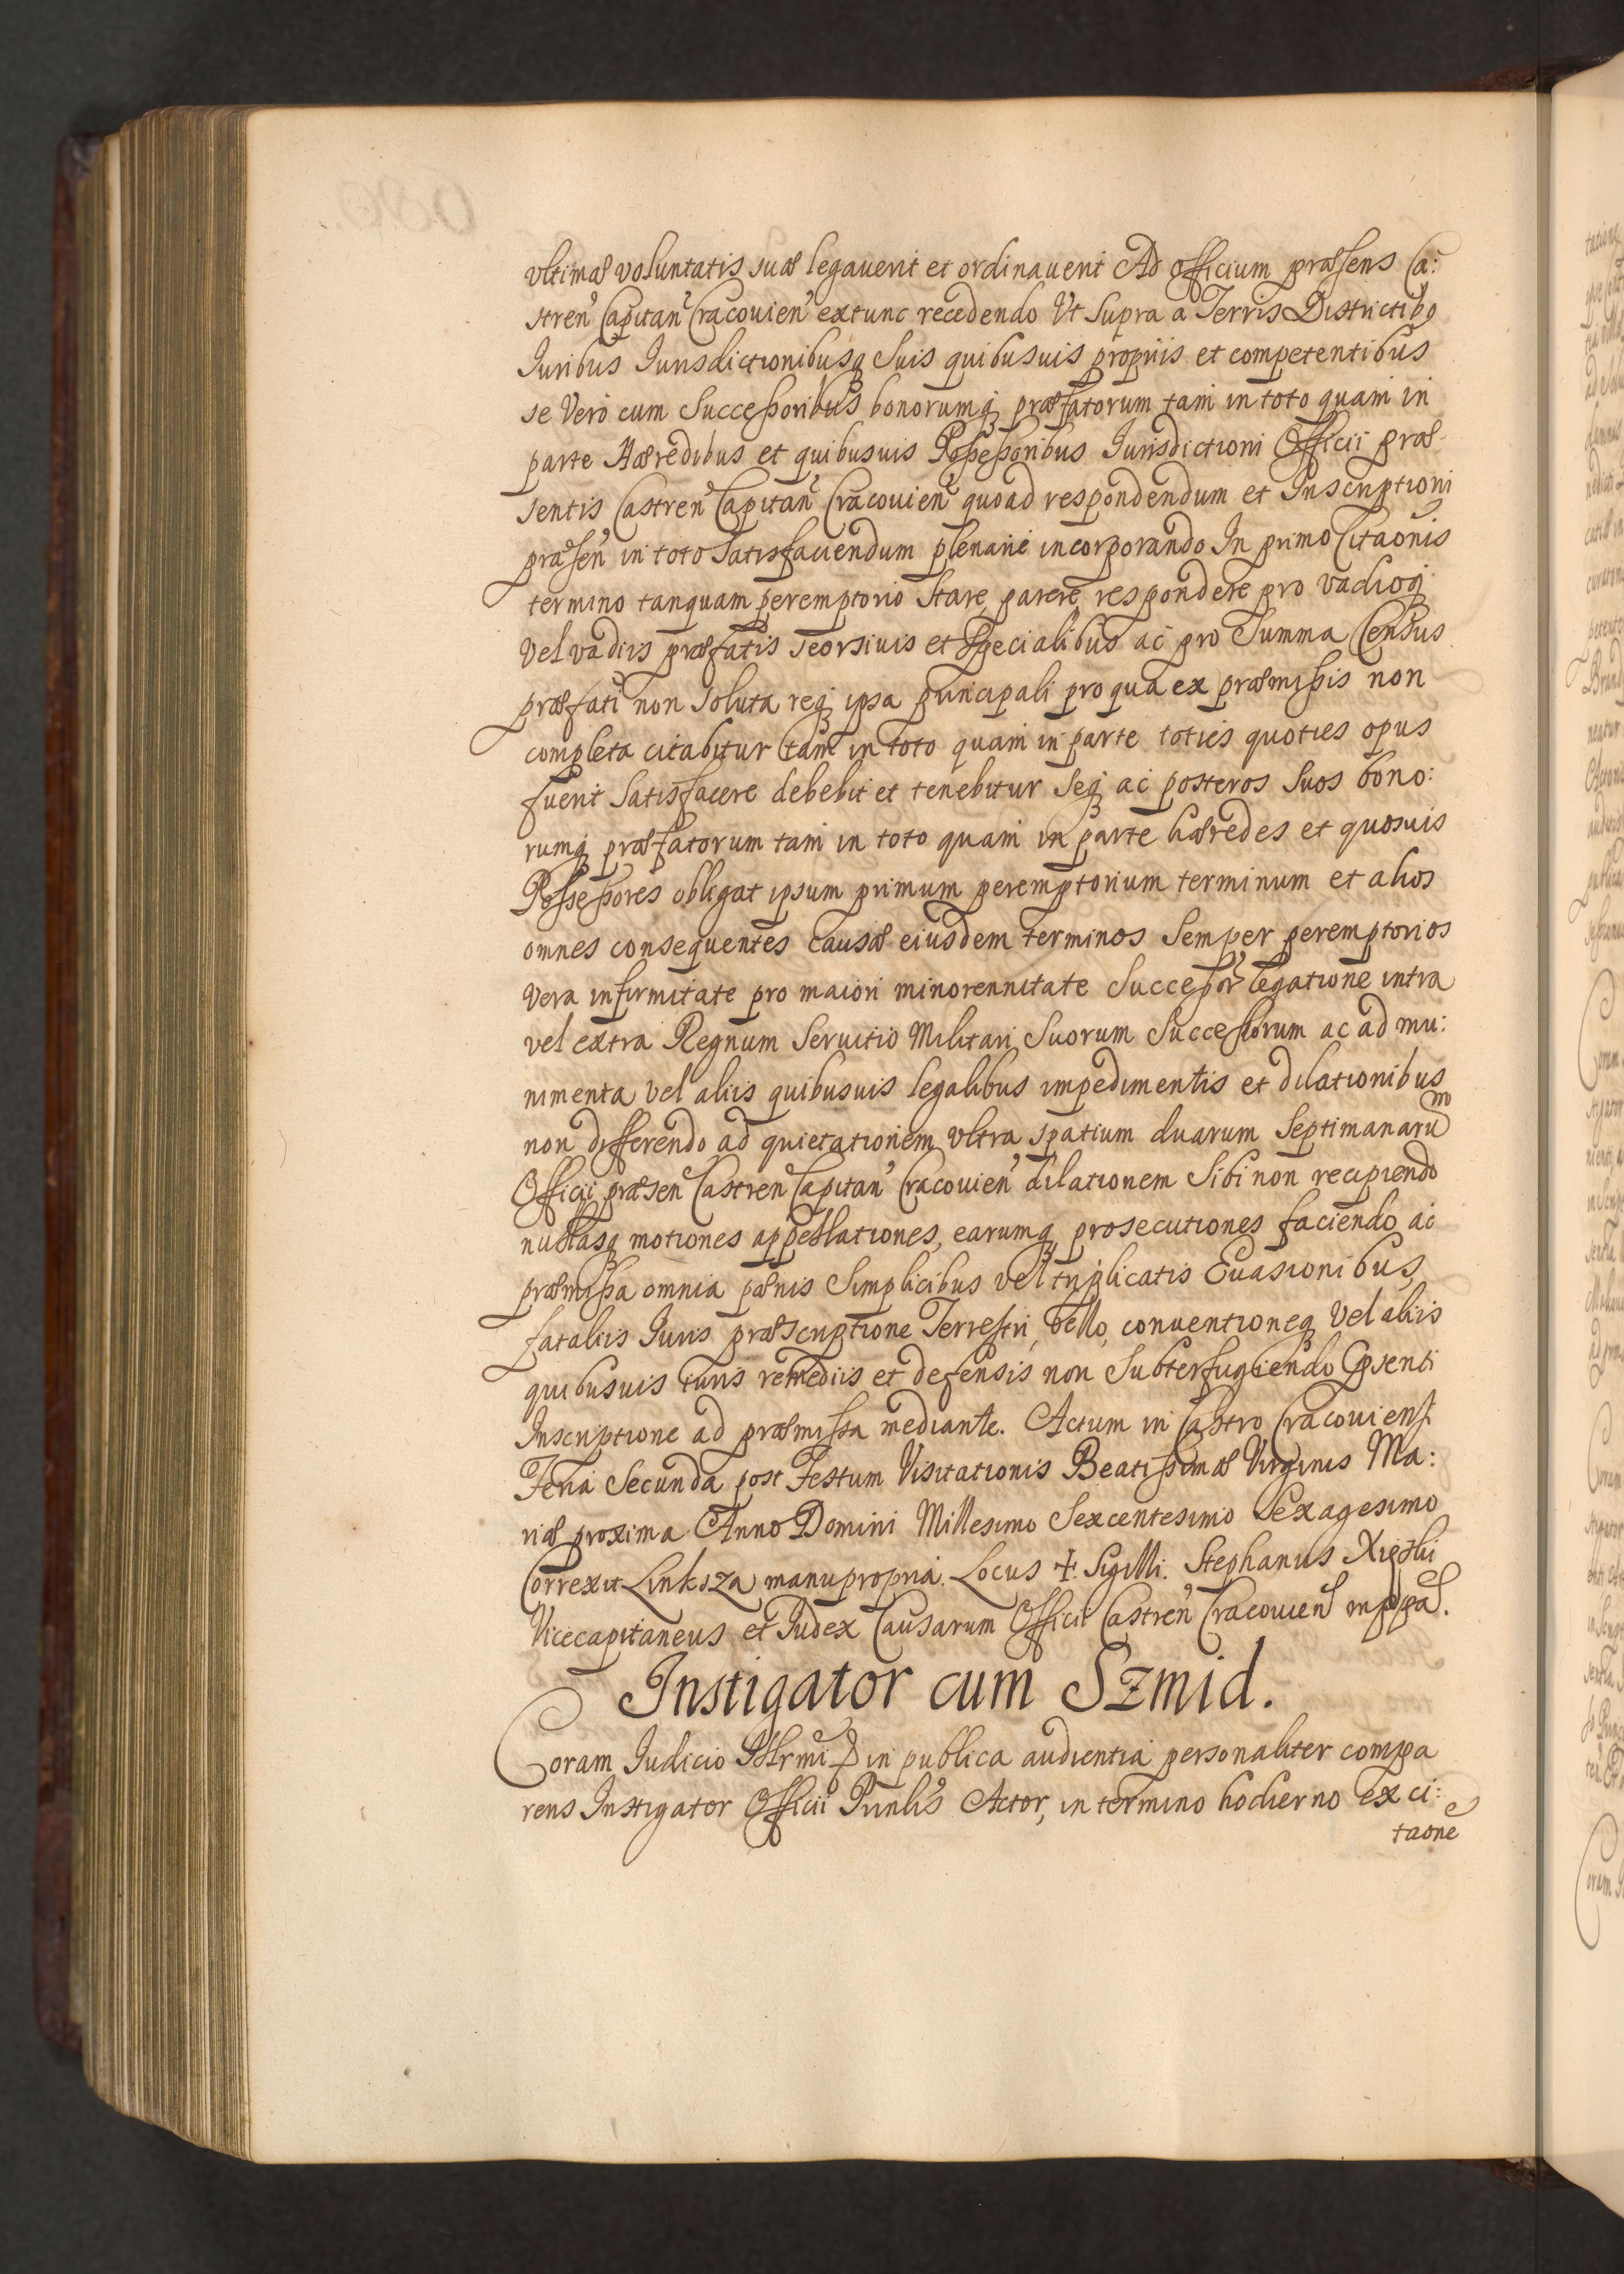 vltimæ voluntatis suæ legauerit et ordinauerit Ad Officium præsens Ca:
stren Capitan Cracouien extunc recedendo Vt Supra a Terris Districtibg
Iuribus Iurisdictionibusq Suis quibusuis proprijs et competentibus
se Vero cum Successoribus bonorumq præfatorum tam in toto quam in
parte Hæredibus et quibusuis Possessoribus Iurisdictioni Officii præ-
sentis Castren Capitan Cracouien quoad respondendum et Inscriptioni
præsen in toto Satisfaciendum plenarie incorporando In primo Citaonis
termino tanquam peremptorio Stare, parere, respondere pro vadioq
Vel vadiis præfatis seorsiuis et Specialibus ac pro Summa Census
præfati non soluta req ipsa principali pro qua ex præmissis non
completa citabitur tam in toto quam in parte toties quoties opus
fuerit Satisfacere debebit et tenebitur Seq ac posteros Suos bono:
rumq præfatorum tam in toto quam in parte hæredes et quosuis
Possessores obligat ipsum primum peremptorium terminum et alios
omnes consequentes causæ eiusdem terminos Semper peremptorios
Vera infirmitate pro maiori minorennitate Successor legatione intra
vel extra Regnum Seruitio Militari Suorum Successorum ac ad mu:
nimenta vel aliis quibusuis legalibus impedimentis et dilationibus
non differendo ad quietationem vltra spatium duarum Septimanarum
Officij præsen Castren Capitan Cracouien dilationem Sibi non recipiendo
nullasq motiones appellationes, earumq prosecutiones faciendo ac
præmissa omnia pænis Simplicibus vel triplicatis Euasionibus
fataliis Iuris præscriptione Terrestri, bello, conuentioneq Vel aliis
quibusuis iuris remediis et defensis non Subterfugiendo Pnsenti
Inscriptione ad præmissa mediante. Actum in Castro Cracouiens
Feria Secunda post Festum Visitationis Beatissimæ Virginis Ma:
riæ proxima Anno Domini Millesimo Sexcentesimo Sexagesimo
Correxit Linksza manupropria. Locus ✝. Sigilli. Stephanus Xięski
Vicecapitaneus et Iudex Causarum Officii Castren Cracouien mppa.
Instigator cum Szmid.
Coram Iudicio in publica audientia personaliter compa
rens Instigator Officii Actor, in termino hodierno ex ci:
taone